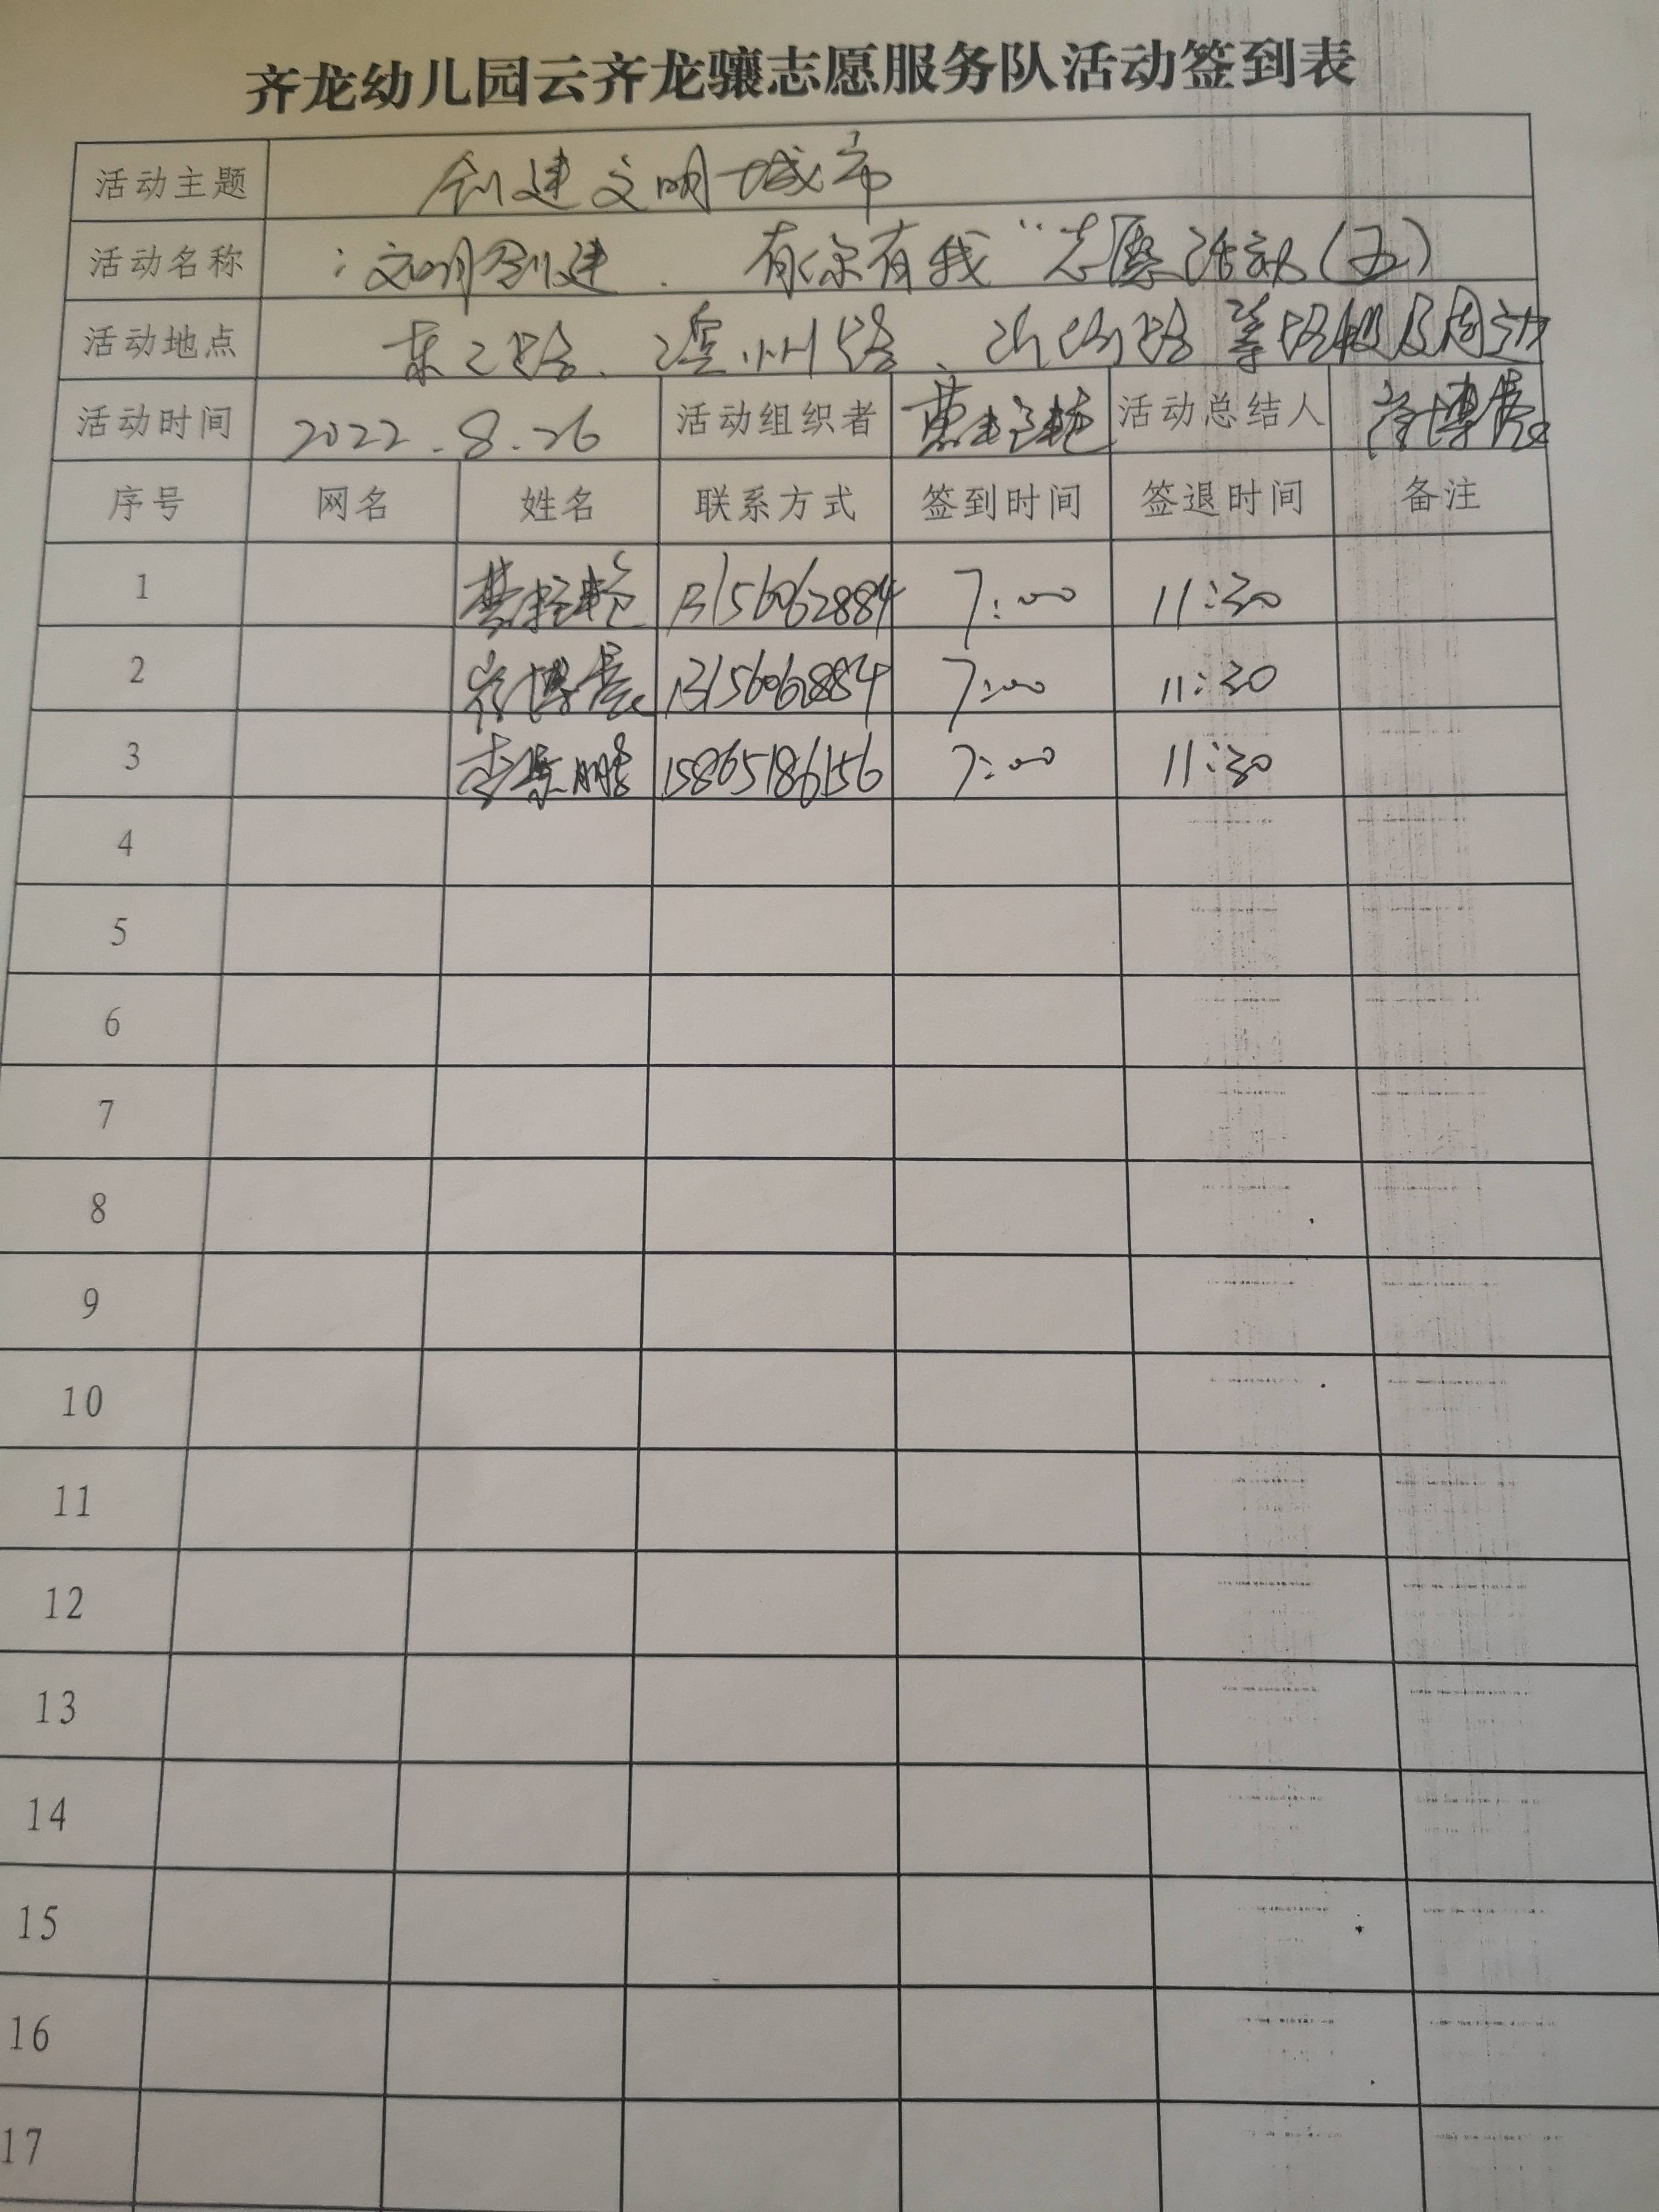 齐龙幼儿园云齐龙骧志愿服务队活动签到表
活动主题 创建文明城市
活动名称 : 文明创建. 有你有我" 志愿活动(五)
活动地点 东二路、 州路、 路 等路段及周边
活动时间 2022.8.26 活动组织者 活动总结人 博
序号 网名 姓名 联系方式 签到时间 签退时间 备注
1 13156062884 7:00 11:30
2 博 13156062884 7:00 11:30
3 李 鹏 15865186156 7:00 11:30
4
5
6
7
8
9
10
11
12
13
14
15
16
17